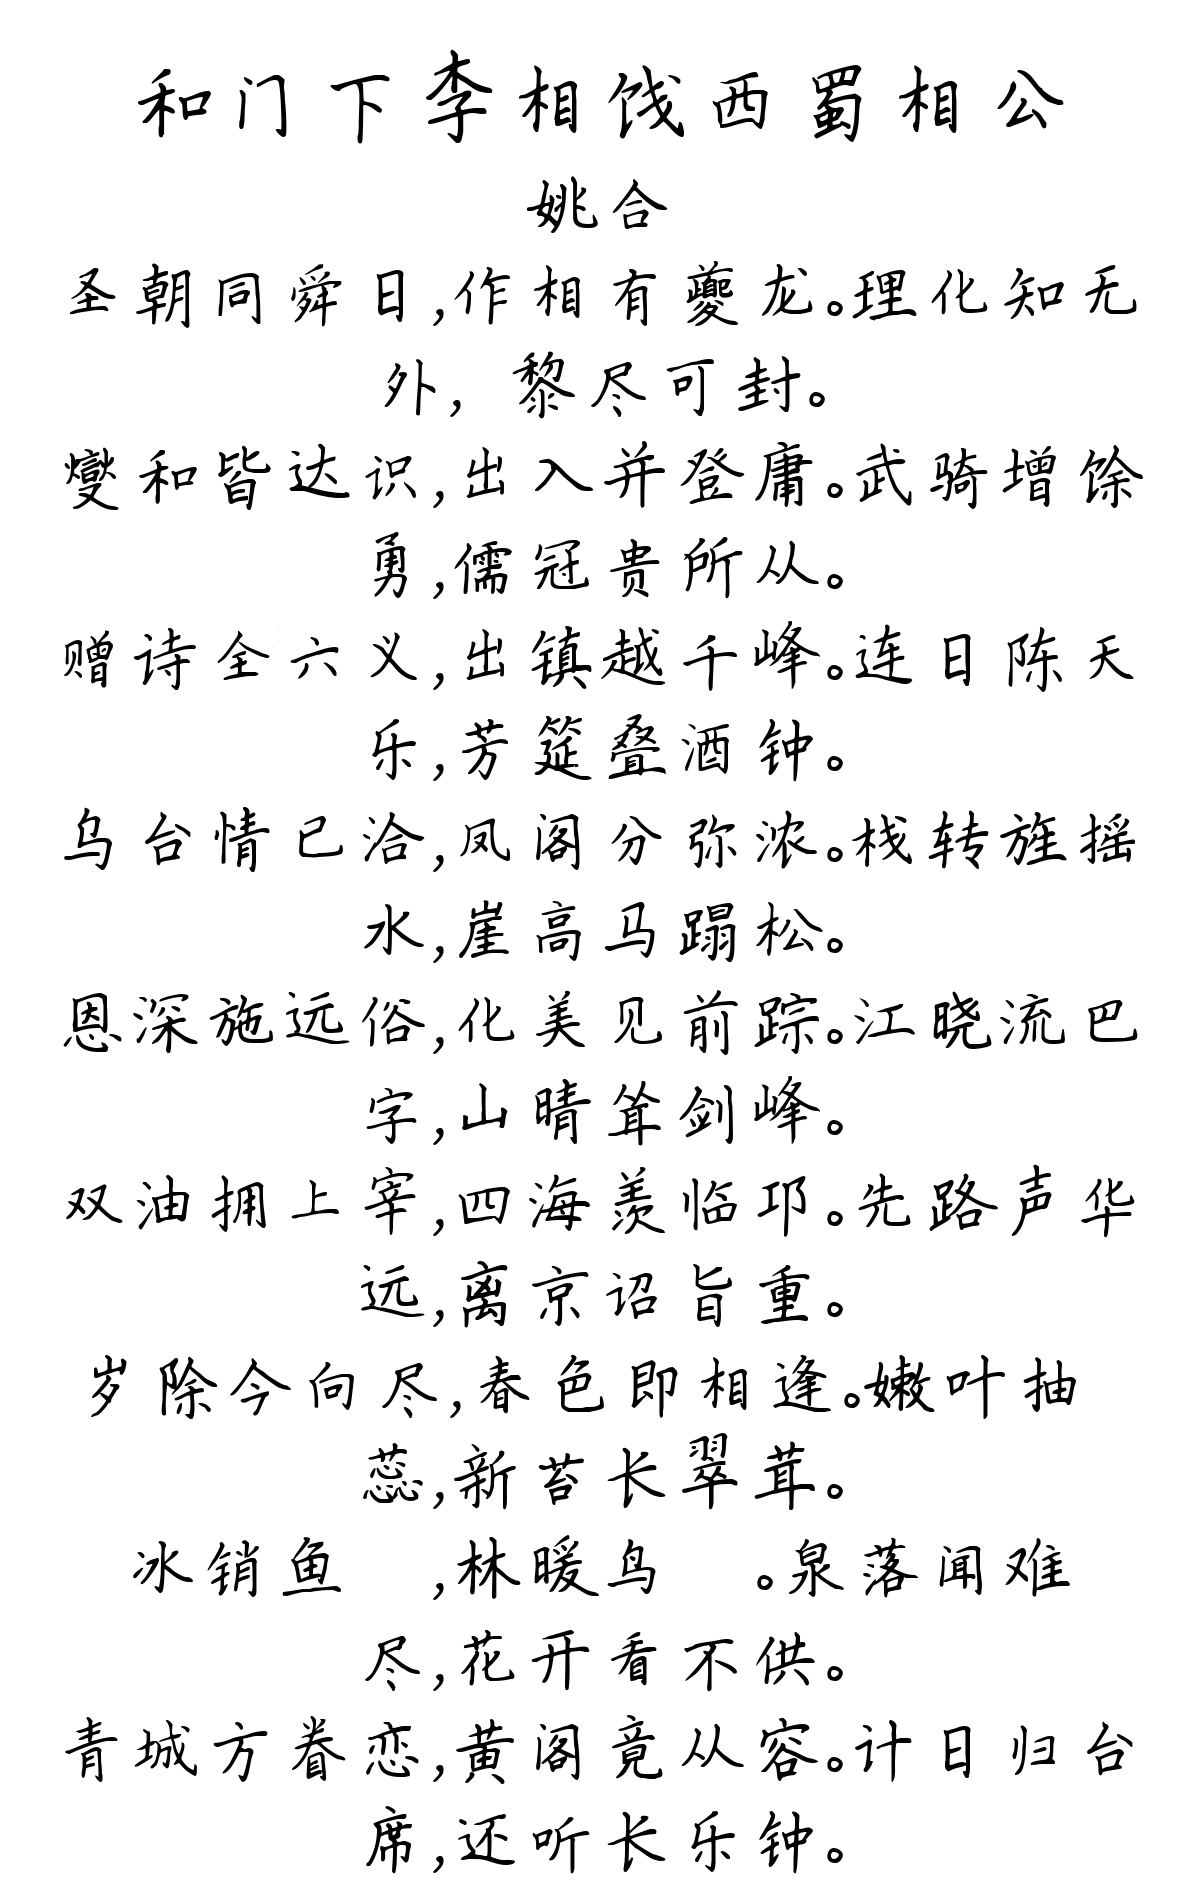 和门下李相饯西蜀相公
姚合
圣朝同舜日,作相有夔龙。理化知无
外, 黎尽可封。
燮和皆达识,出入并登庸。武骑增馀
勇,儒冠贵所从。
赠诗全六义,出镇越千峰。连日陈天
乐,芳筵叠酒钟。
乌台情已洽,凤阁分弥浓。栈转旌摇
水,崖高马蹋松。
恩深施远俗,化美见前踪。江晓流巴
字,山晴耸剑峰。
双油拥上宰,四海羡临邛。先路声华
远,离京诏旨重。
岁除今向尽,春色即相逢。嫩叶抽
蕊,新苔长翠茸。
冰销鱼 ,林暖鸟 。泉落闻难
尽,花开看不供。
青城方眷恋,黄阁竟从容。计日归台
席,还听长乐钟。